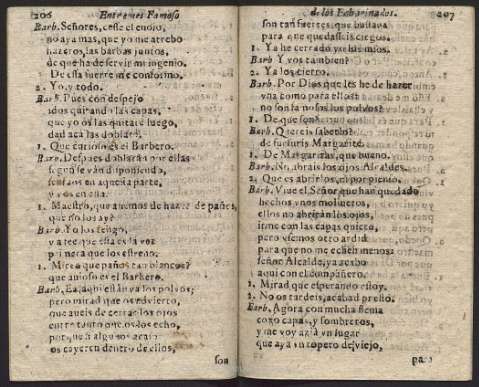 206 Entremes Famoso
Barb. Señores, cesse el enojo,
no aya mas, que yo me atrebo
hazeros las barbas juntos,
de que ha de servir mi ingenio.
1. De essa suerte me conformo.
2. Yo, y todo.
Barb. Pues con despejo
idos quitando las capas,
que yo os las quitarè luego,
dad acà las doblarè.
1. Que curioso es el Barbero.
Barb. Despues doblaràn por ellas
segun se van disponiendo,
sentaos en aquesta parte,
y vos en esta.
1. Maestro, que avemos de hazer de paños,
que no los ay?
Barb. Yo los tengo,
y a fee que esta es la vez
primera que los estreno.
1. Mire que paños tan blancos?
que anioso es el Barbero.
Barb. Ea, aqui estàn ya los polvos;
pero mirad que os advierto,
que aveis de cerrar los ojos
entre tanto que os los echo,
por que si algunos acaso
os cayeren dentro de ellos,
son
de los Enharinados. 207
son tan fuertes, que bastava
para que quedasseis ciegos.
1. Ya he cerrado yo los mios.
Barb. Y vos tambien?
2. Ya los cierro.
Barb. Por Dios que les he de hazer
una como para ellos:
no son famosos los polvos?
1. De que son?
Barb. Quereis saberlo?
de
1. De Margaritas, que bueno.
Barb. No abrais los ojos Alcaldes.
2. Que es abrirlos, ni por pienso.
Barb. Vive el Señor que han quedado
hechos unos moli eros,
ellos no abriràn los ojos,
irme con las capas quiero,
pero usemos otro ardid
para que no me echen menos:
señor Alcalde, ya acabo
aqui con el compañero.
1. Mirad que esperando estoy.
2. No os tardeis, acabad presto.
Barb. Agora con mucha flema
cojo capas, y sombreros,
y me voy azia un lugar
que aya un ropero de viejo,
pa